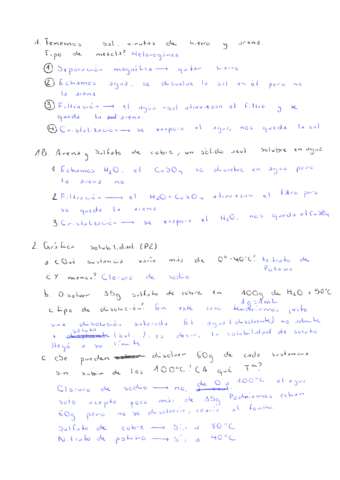 1. Tenemos sal, virutas de hierro y arena.
Tipo de mezcla? Heterogénea
① Separación magnética → quitar hierro
② Echamos agua, se disuelve la sal en él pero no
la arena
③ Filtración → el agua+sal atraviesan el filtro y se
queda la arena.
④ Cristalización → se evapora el agua, nos queda la sal
1B. Arena y Sulfato de cobre, un sólido azul soluble en agua
1 Echamos H2O. el CuSO4 se disuelve en agua pero
la arena no.
2 Filtración → el H2O+CuSO4 atraviesan el filtro pero
se queda la arena
3 Cristalización → se evapora el H2O. nos queda el CuSO4
2. Gráfica solubilidad (P2)
a. ¿Qué sustancia varía más de 0º-40ºC? Nitrato de
Potasio
¿Y menos? Cloruro de sodio
b. Disolver 35g sulfato de cobre en 100g de H2O a 50ºC
1g=1ml
¿tipo de disolución? En este caso tendríamos justo
una disolución saturada. El agua (disolvente) no admite
+ soluto (sul..), es decir, la solubilidad de soluto
llegó a su límite
c. ¿Se pueden disolver 60g de cada sustancia
sin subir de los 100ºC? ¿A qué Tª?
Cloruro de sodio → no, de 0 a 100ºC el agua
solo acepta poco más de 35g. Podríamos echar
60g pero no se disolvería, caería al fondo.
Sulfato de cobre → Sí, a 80ºC
Nitrato de potasio → Sí, a 40ºC